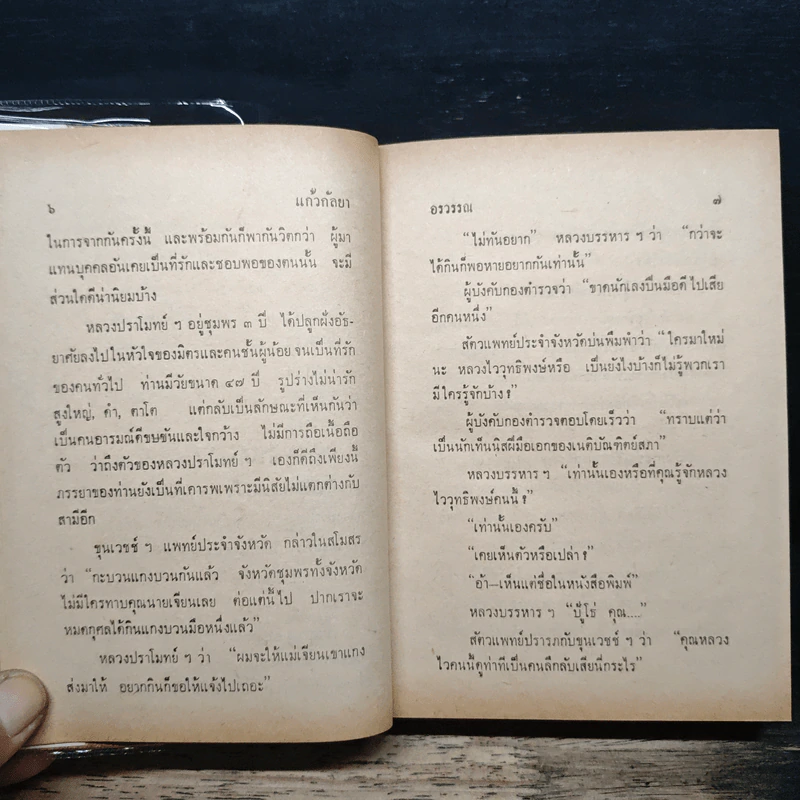 ๖ แก้วกัลยา
ในการจากกันครั้งนี้ และพร้อมกันก็พากันวิตกว่า ผู้มา
แทนบุคคลอันเคยเป็นที่รักและชอบพอของตนนั้น จะมี
ส่วนใดดีน่านิยมบ้าง
หลวงปราโมทย์ ฯ อยู่ชุมพร ๓ ปี ได้ปลูกฝังอัธ-
ยาศัยลงไปในหัวใจของมิตรและคนชั้นผู้น้อย จนเป็นที่รัก
ของคนทั่วไป ท่านมีวัยขนาด ๔๗ ปี รูปร่างไม่น่ารัก
สูงใหญ่, ดำ, ตาโต แต่กลับเป็นลักษณะที่เห็นกันว่า
เป็นคนอารมณ์ดีขบขันและใจกว้าง ไม่มีการถือเนื้อถือ
ตัว ว่าถึงตัวของหลวงปราโมทย์ ฯ เองก็ดีถึงเพียงนี้
ภรรยาของท่านยังเป็นที่เคารพเพราะมีนิสัยไม่แตกต่างกับ
สามีอีก
ขุนเวชช์ ฯ แพทย์ประจำจังหวัด กล่าวในสโมสร
ว่า “กะบวนแกงบวนกันแล้ว จังหวัดชุมพรทั้งจังหวัด
ไม่มีใครทาบคุณนายเจียนเลย ต่อแต่นี้ไป ปากเราจะ
หมดกุศลได้กินแกงบวนมือหนึ่งแล้ว”
หลวงปราโมทย์ ฯ ว่า “ผมจะให้แม่เจียนเขาแกง
ส่งมาให้ อยากกินก็ขอให้แจ้งไปเถอะ”
อรวรรณ ๗
“ไม่ทันอยาก” หลวงบรรหาร ฯ ว่า “กว่าจะ
ได้กินก็พอหายอยากกันเท่านั้น”
ผู้บังคับกองตำรวจว่า “ขาดนักเลงปืนมือดีไปเสีย
อีกคนหนึ่ง”
สัตวแพทย์ประจำจังหวัดบ่นพึมพำว่า “ใครมาใหม่
นะ หลวงไววุทธิพงษ์หรือ เป็นยังไงบ้างก็ไม่รู้พวกเรา
มีใครรู้จักบ้าง ?”
ผู้บังคับกองตำรวจตอบโดยเร็วว่า “ทราบแต่ว่า
เป็นนักเท็นนิสฝีมือเอกของเนติบัณฑิตย์สภา”
หลวงบรรหาร ฯ “เท่านั้นเองหรือที่คุณรู้จักหลวง
ไววุทธิพงษ์คนนี้ ?”
“เท่านั้นเองครับ”
“เคยเห็นตัวหรือเปล่า ?”
“อ้า—เห็นแต่ชื่อในหนังสือพิมพ์”
หลวงบรรหาร ฯ “ปู้โธ่ คุณ....”
สัตวแพทย์ปรารภกับขุนเวชช์ ฯ ว่า “คุณหลวง
ไวคนนี้ดูท่าทีเป็นคนลึกลับเสียนี่กระไร”